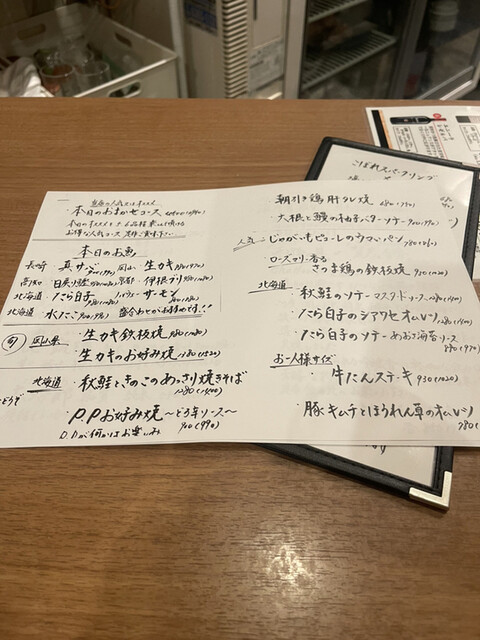 本日のおまかせコース
本日のお魚
長崎 真サバ 岡山 生カキ
高知 日戻り鰹 京都 伊根ブリ
北海道 たら白子 サーモン
北海道 水たこ 盛合わせがお得です!!
旬 岡山県 生カキ鉄板焼 980(1080)
生カキのお好み焼 1380(1520)
北海道 秋鮭ときのこのあっさり焼きそば 1280(1400)
P.Pお好み焼 〜どろ辛ソース〜 900(990)
P.Pが何かはお楽しみ
朝引き鶏肝タレ焼
大根と鰻の柚子バターソテー 900(990)
人気 じゃがいもピューレのウマいパン
ローズマリー香る
さつま鶏の鉄板焼 930(1020)
北海道 秋鮭のソテーマスタードソース 1280(1400)
たら白子のシアワセオムレツ
たら白子のソテーあおさ海苔ソース 880(970)
お一人様サイズ
牛たんステーキ 930(1020)
豚キムチとほうれん草のオムレツ
こぼれスパークリング